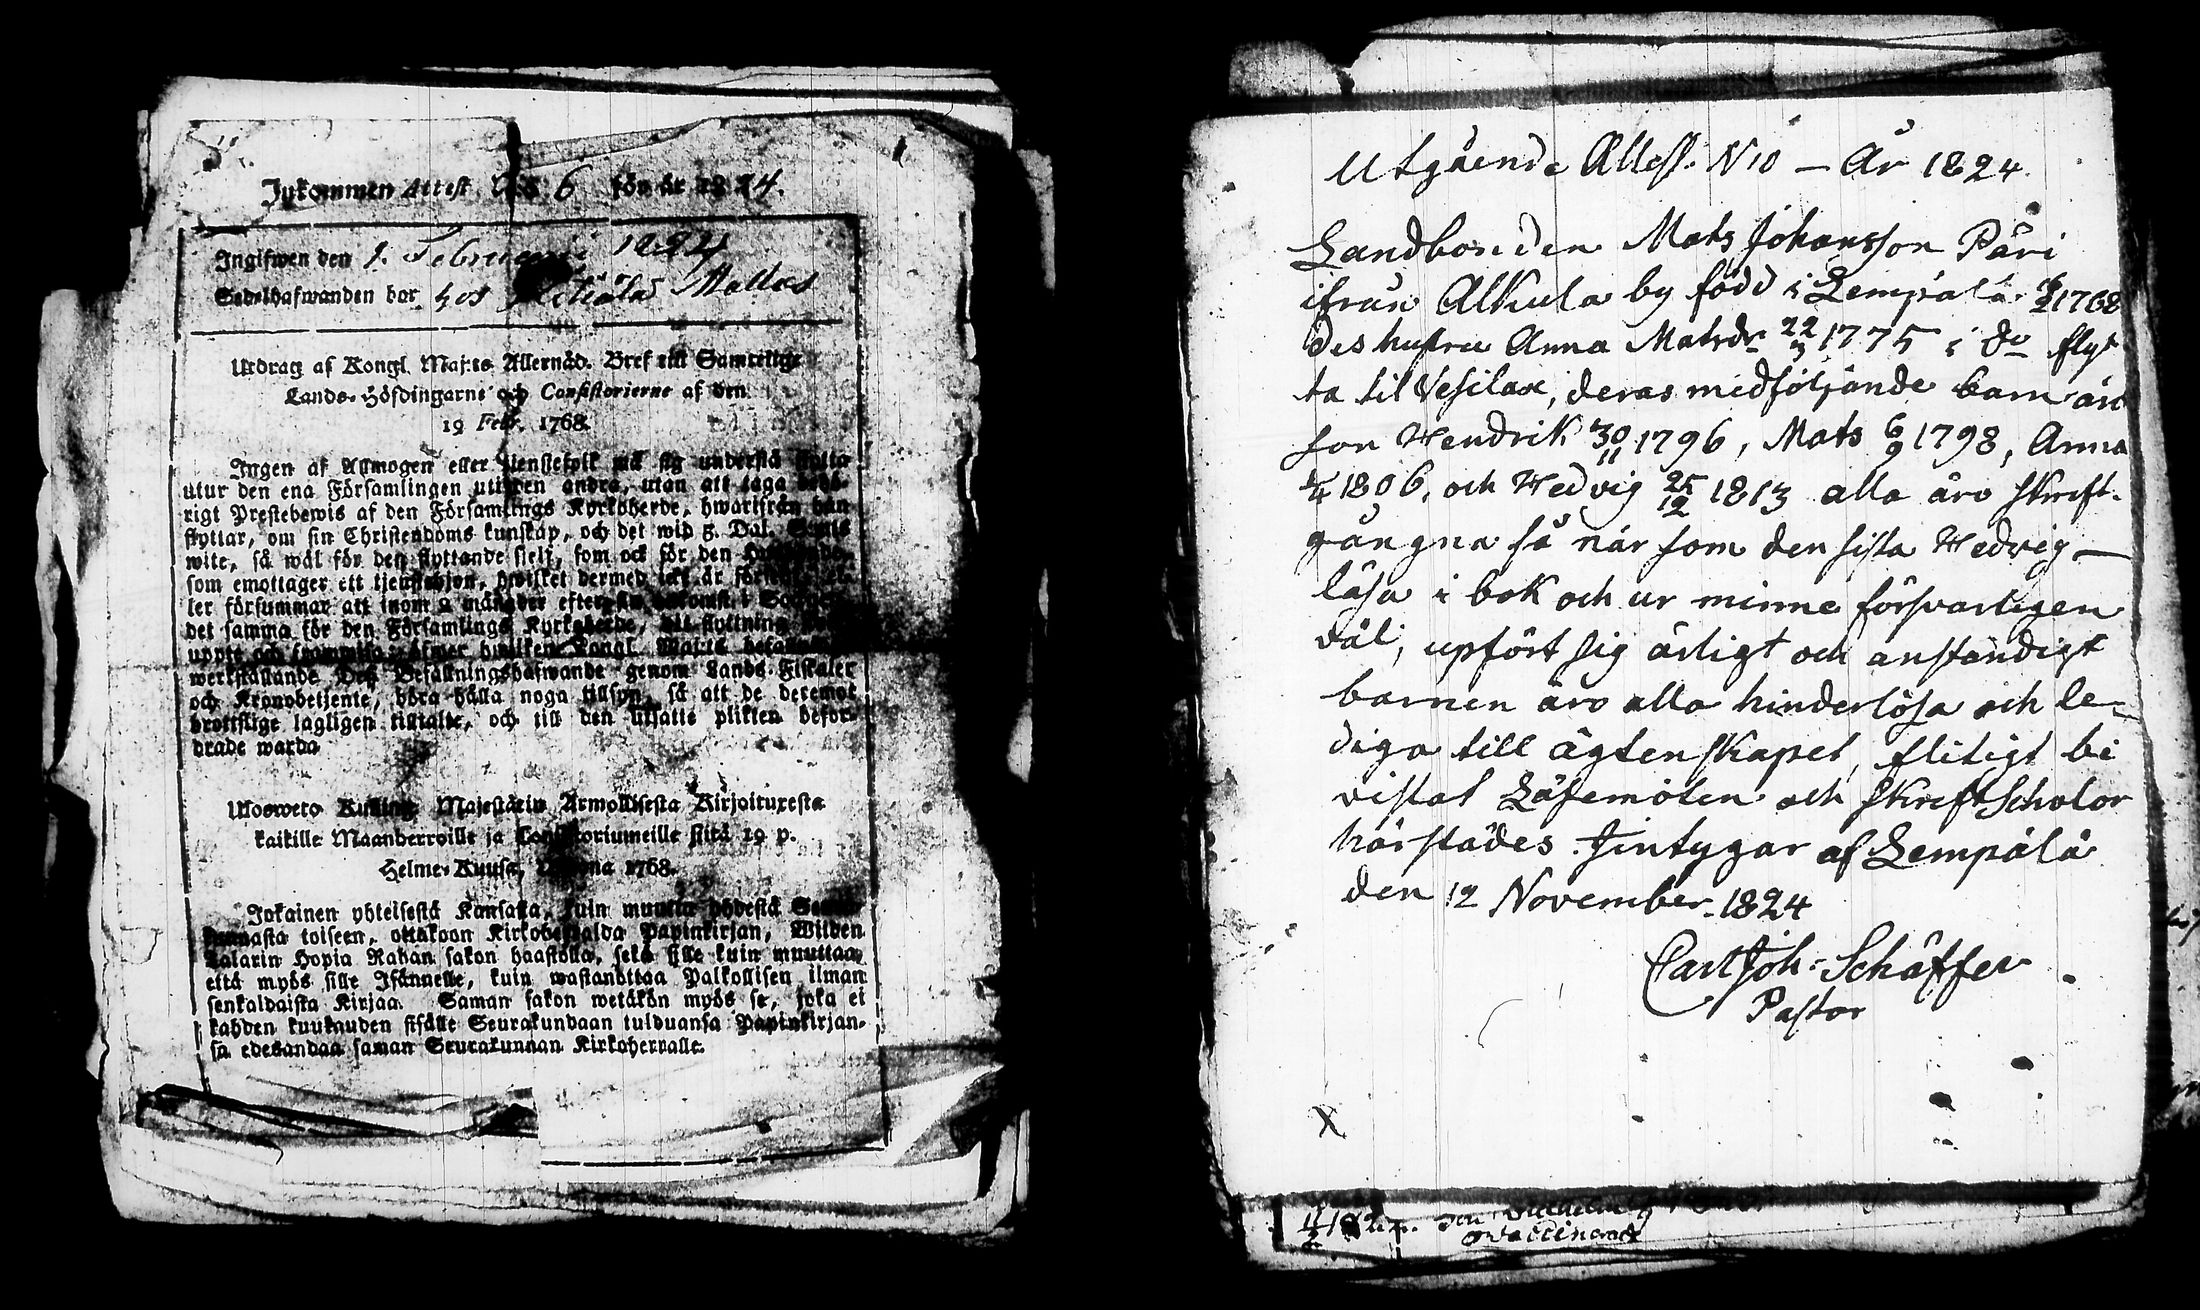 Inkommen Attest N:o 6 för år 1824.
Ingifwen den 1. Februarii 1824
Sedelhafwanden bor hos Mattas
Utdrag af Kongl. Maj:ts Allernåd. Bref till Samtelige
Lands-Höfdingarne och Consistorierne af den
19 Febr. 1768.
Ingen af Allmogen eller tienstefolk må sig understå flytta
utur den ena Församlingen uti den andra, utan att taga behö-
rigt Prestebewis af den Församlings Kyrkoherde, hwarifrån han
flyttar, om sin Christendoms kunskap, och det wid 5. Dal. Smts
wite, så wäl för den flyttande sielf, som ock för den
som emottager ett tjenstehjon, hwilket dermed icke är försedt, el-
ler försummar att inom 2 månader efter sin ankomst i Socknen
det samma för den Församlings Kyrkoherde, dit flyttning
uppte och framwisa; öfwer hwilken Kongl. Maj:ts
werkställande Dess Befallningshafwande genom Lands-Fiskaler
och Kronobetjente, böra hålla noga tillsyn, så att de deremot
brottslige lagligen tilltalte, och till den utsatte plikten befor-
drade warda
Ulosweto Kuning: Majestätin Armollisesta Kirjoituxesta
kaikille Maanherroille ja Consistoriumeille siitä 19 p.
Helme-Kuusa, wuonna 1768.
Jokainen yhteisestä Kansasta, kuin muuttaa yhdestä Seura-
kunnasta toiseen, ottakoon Kirkoherralda Papinkirjan, Wiiden
Talarin Hopia Rahan sakon haastolla, sekä sille kuin muuttaa,
että myös sille Isännelle, kuin wastanottaa Palkollisen ilman
senkaldaista Kirjaa. Saman sakon wetäkön myös se, joka ei
kahden kuukauden sisälle Seurakundaan tulduansa Papinkirjan-
sa edesandaa saman Seurakunnan Kirkoherralle.
Utgående Attest. N 10 – År 1824
Landbonden Mats Johansson Päri
ifrån Alkula by född i Lempälä 6/2 1768
des hustru Anna Matsdr 22/3 1775 i do flyt
ta til Vesilax, deras medföljande barn äro
son Hendrik 30/11 1796, Mats 6/9 1798, Anna
1/4 1806, och Hedvig 25/12 1813 alla äro skrift-
gångna så när som den sista Hedvig –
läsa i bok och ur minne försvarligen
väl, upfört sig ärligt och anständigt
barnen äro alla hinderlösa och le-
diga till ägtenskapet, flitigt bi
vistat Läsemöten och skriftScholor
härstädes. Jintygar af Lempälä
den 12 November 1824
Carl Joh: Schäffer
Pastor
X